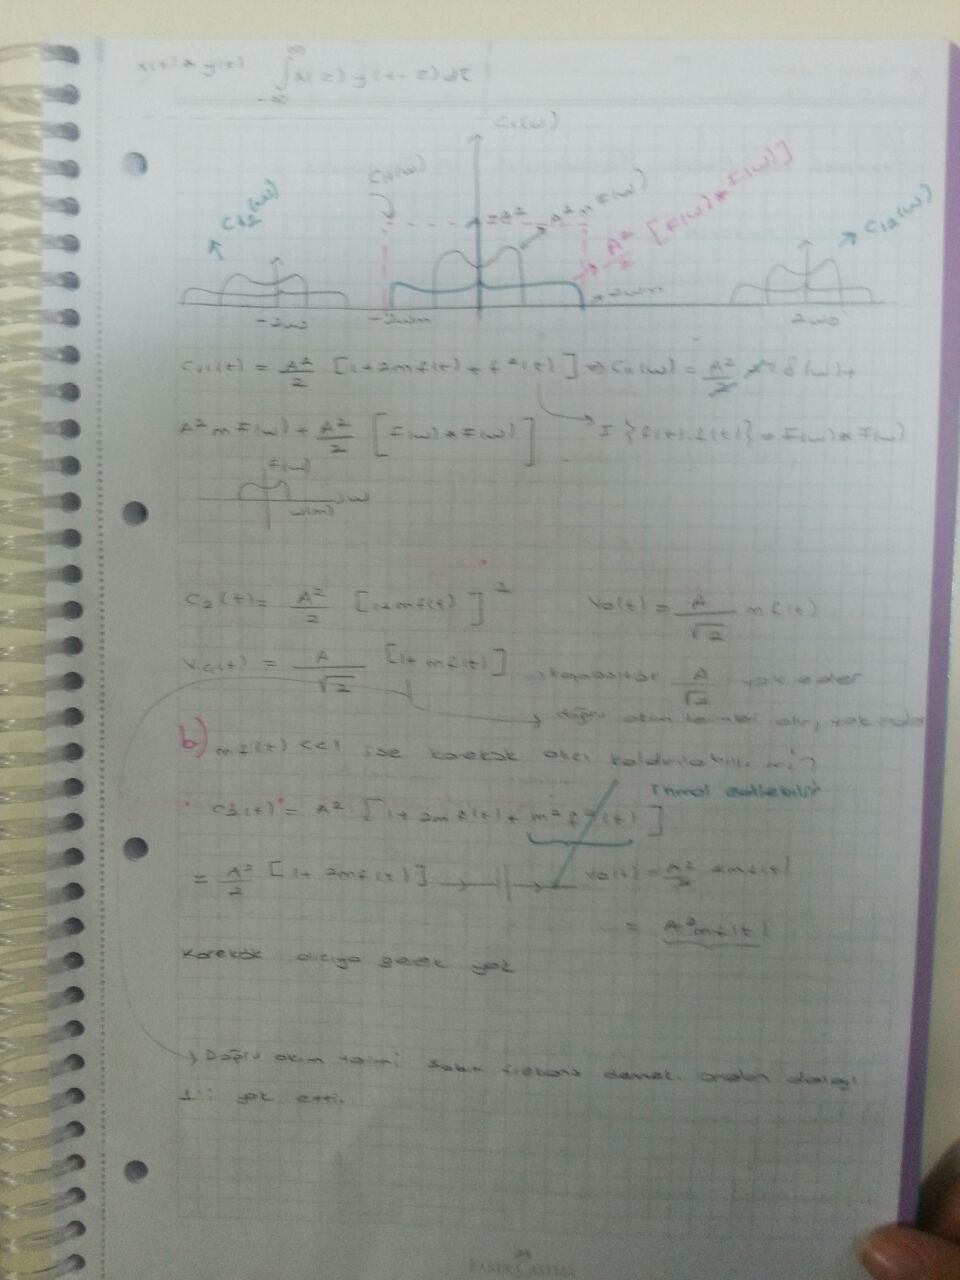 x(t) * y(t) ∫ x(z) y(t-z) dτ
∞
-∞
C₁(ω)
C₁₁(ω)
C₁₂(ω)
πA² A² m F(ω)
A²/2 [F(ω) * F(ω)]
C₁₂(ω)
-2ω₀ -2ωm 2ωm 2ω₀
C₁₁(t) = A²/2 [1+2mf(t)+f²(t)] ⇒ C₁(ω) = A²/2 2πδ(ω)+
A² m F(ω) + A²/2 [F(ω) * F(ω)] F{f(t).f(t)} = F(ω) * F(ω)
F(ω)
ω(m) ω
C₂(t) = A²/2 [1+mf(t)]² V₀(t) = A/√2 m f(t)
(t) = A/√2 [1+mf(t)] → kapasitör A/√2 yok eder
→ doğru akım
b) mf(t) <<1 ise karekök alıcı kaldırılabilir mi?
ihmal edilebilir
C₂(t) = A² [1+2mf(t)+m²f²(t)]
= A²/2 [1+2mf(t)] → —||→ V₀(t) = A²/2 2mf(t)
= A²mf(t)
Karekök alıcıya gerek yok
→ Doğru akım sabit frekans demek. ondan dolayı
1'i yok etti.
FABER-CASTELL